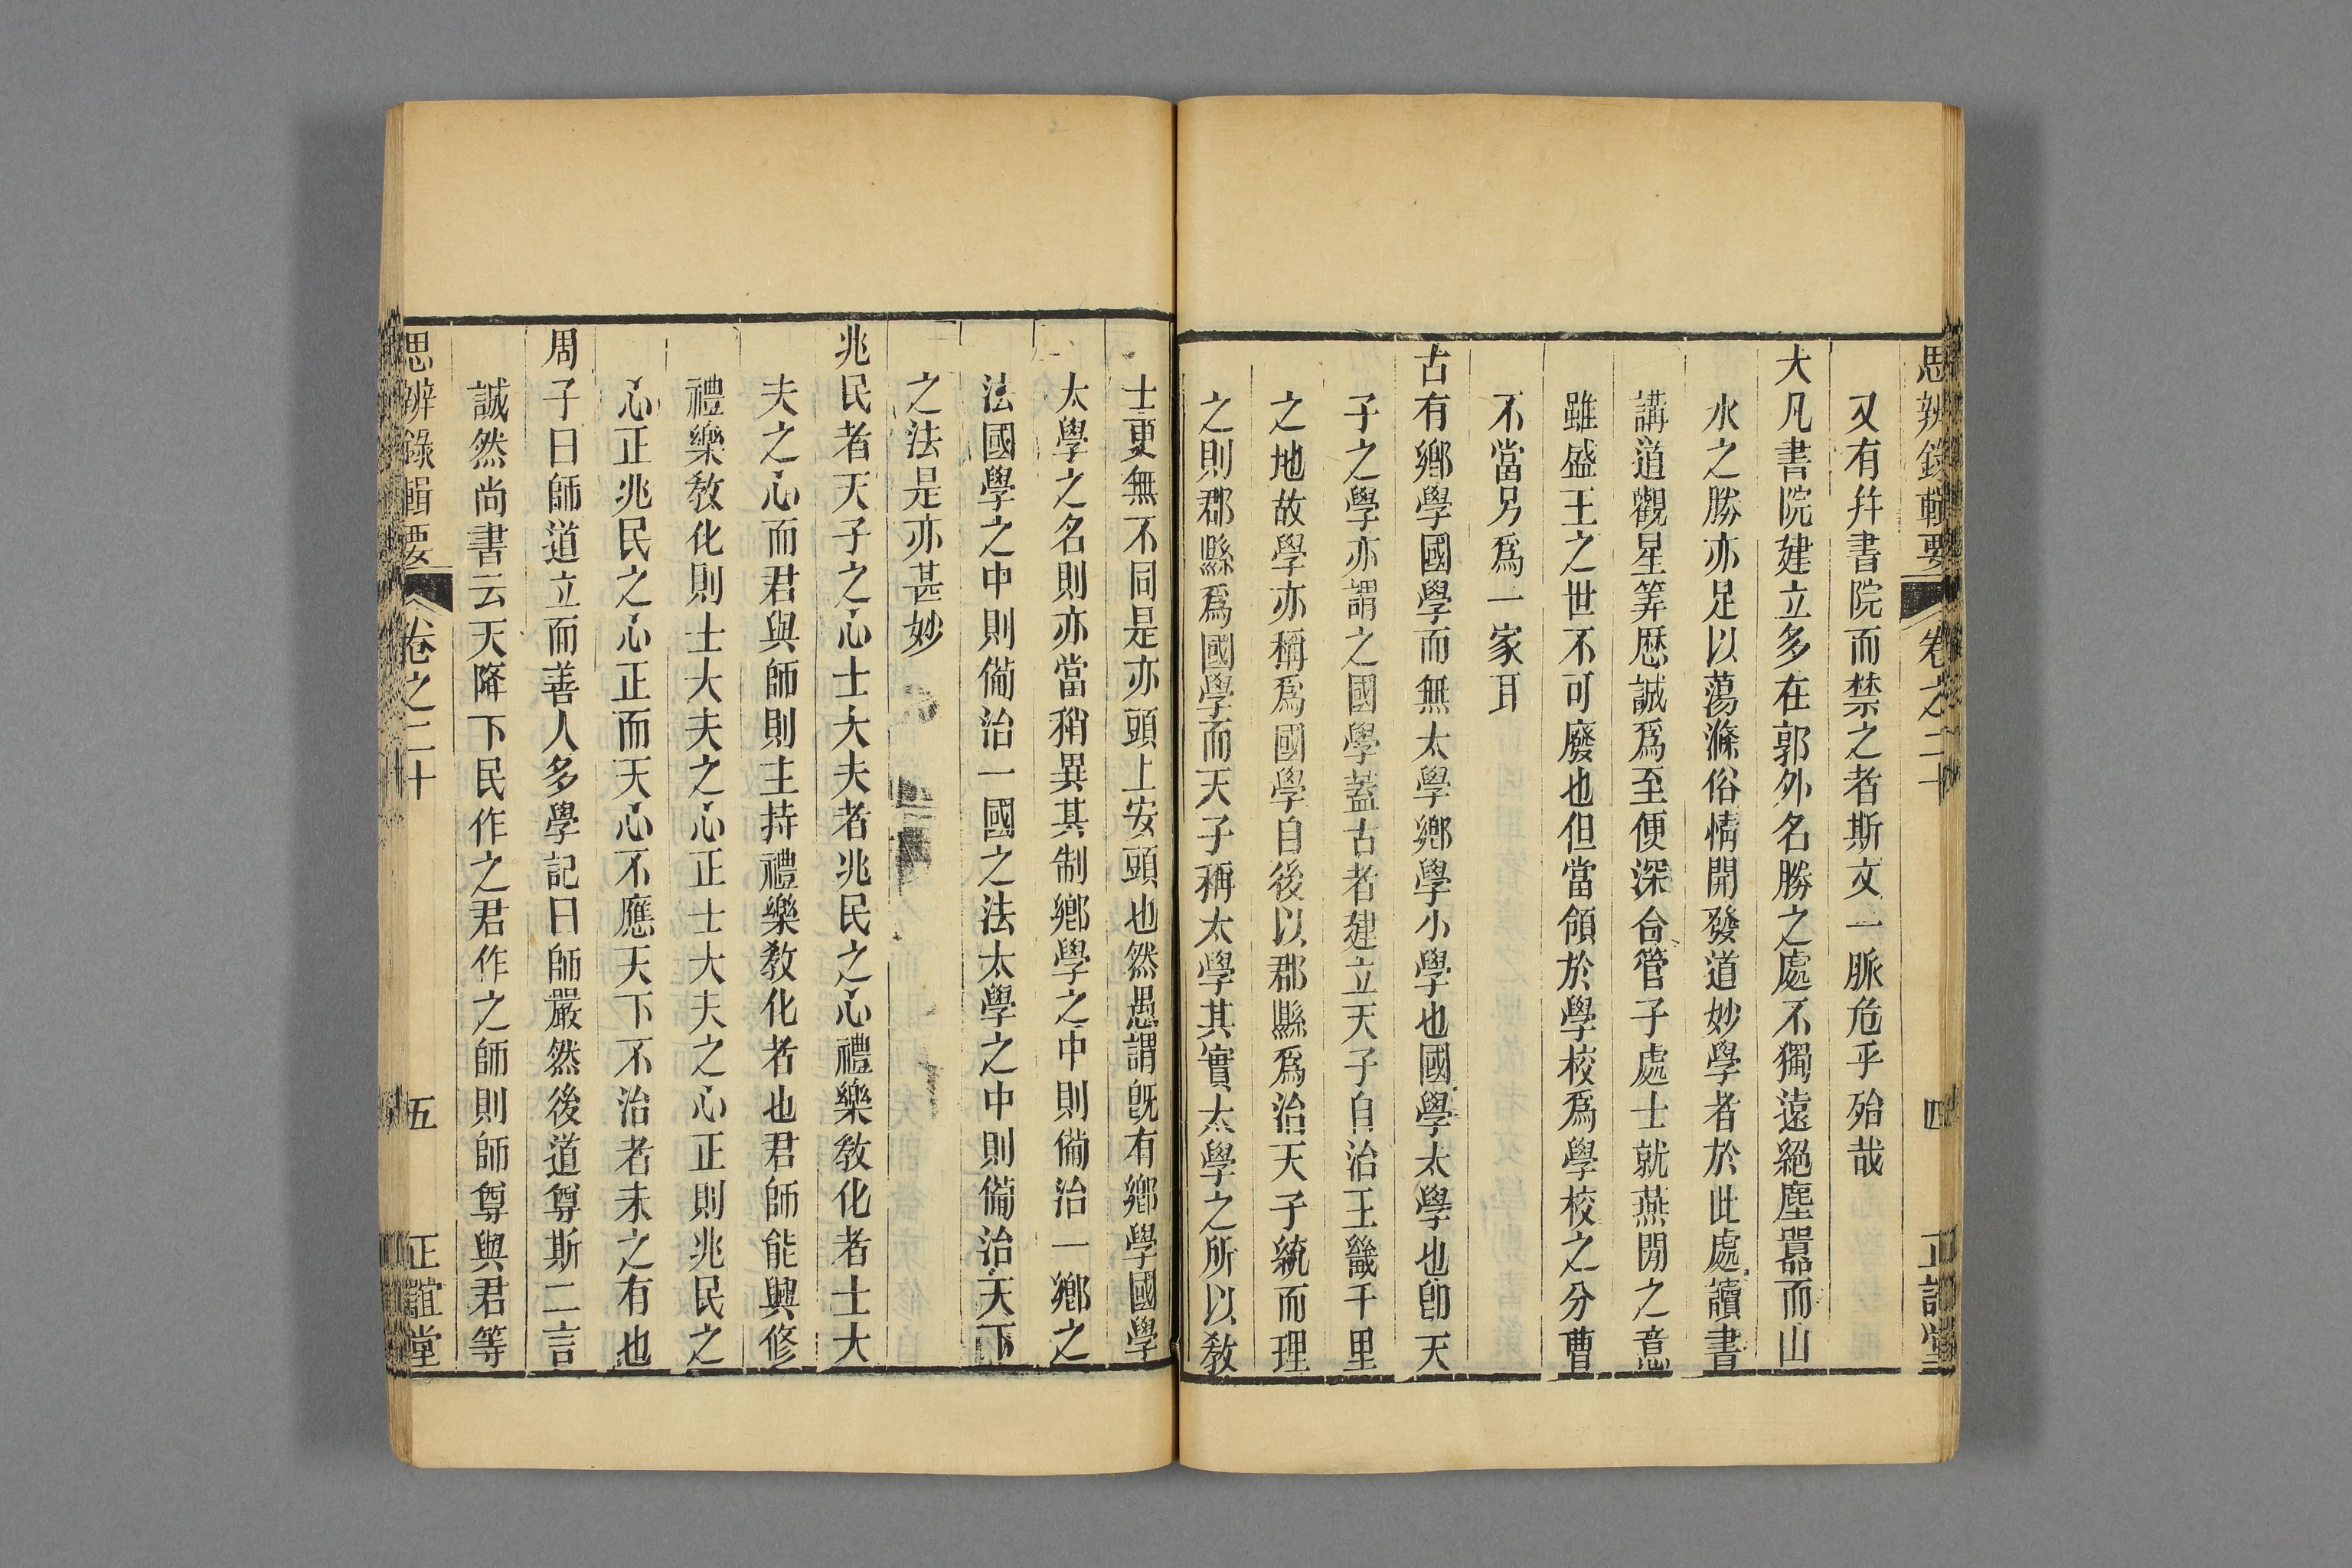 思辨錄輯要 卷之二十 四 正誼堂
又有幷書院而禁之者斯文一脈危乎殆哉
大凡書院建立多在郭外名勝之處不獨遠絕塵囂而山
水之勝亦足以蕩滌俗情開發道妙學者於此處讀書
講道觀星筭歷誠爲至便深合管子處士就燕閒之意
雖盛王之世不可廢也但當領於學校爲學校之分曹
不當另爲一家耳
古有鄉學國學而無太學鄉學小學也國學太學也卽天
子之學亦謂之國學蓋古者建立天子自治王畿千里
之地故學亦稱爲國學自後以郡縣爲治天子統而理
之則郡縣爲國學而天子稱太學其實太學之所以敎
士更無不同是亦頭上安頭也然愚謂旣有鄉學國學
太學之名則亦當稍異其制鄉學之中則備治一鄉之
法國學之中則備治一國之法太學之中則備治天下
之法是亦甚妙
兆民者天子之心士大夫者兆民之心禮樂敎化者士大
夫之心而君與師則主持禮樂敎化者也君師能興修
禮樂敎化則士大夫之心正士大夫之心正則兆民之
心正兆民之心正而天心不應天下不治者未之有也
周子曰師道立而善人多學記曰師嚴然後道尊斯二言
誠然尚書云天降下民作之君作之師則師尊與君等
思辨錄輯要 卷之二十 五 正誼堂